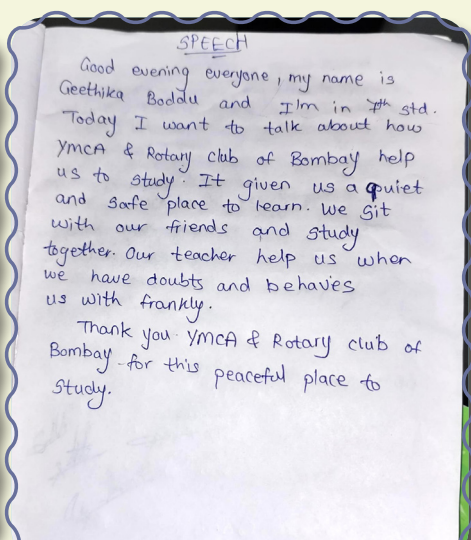 SPEECH
Good evening everyone, my name is
Geethika Boddu and I'm in 7th std.
Today I want to talk about how
YMCA & Rotary club of Bombay help
us to study. It given us a quiet
and safe place to learn. We sit
with our friends and study
together. Our teacher help us when
we have doubts and behaves
us with frankly.
Thank you YMCA & Rotary club of
Bombay for this peaceful place to
study.